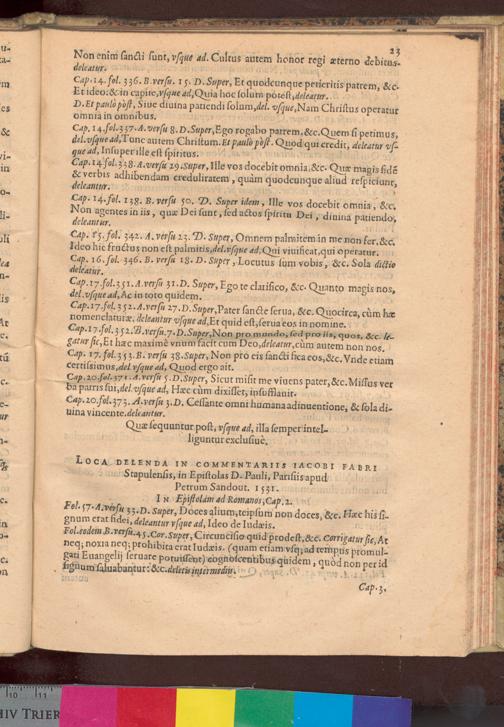 23
Non enim sancti sunt, vsque ad. Cultus autem honor regi æterno debitus.
deleatur.
Cap. 14. fol. 336. B. versu. 15. D. Super, Et quodcunque petieritis patrem, &c.
Et ideo: & in capite, vsque ad, Quia hoc solum potest, deleatur.
D. Et paulò pòst, Siue diuina patiendi solum, del. vsque, Nam Christus operatur
omnia in omnibus.
Cap. 14. fol. 337. A. versu 8. D. Super, Ego rogabo patrem, &c. Quem si petimus,
del. vsque ad, Tunc autem Christum. Et paulò pòst. Quod qui credit, deleatur vs-
que ad, Insuper ille est spiritus.
Cap. 14. fol. 328. A. versu 29. Super, Ille vos docebit omnia, &c. Quæ magis fidē
& verbis adhibendam credulitatem, quàm quodcunque aliud respiciunt,
deleantur.
Cap. 14. fol. 138. B. versu 50. D. Super idem, Ille vos docebit omnia, &c.
Non agentes in iis, quæ Dei sunt, sed actos spiritu Dei, diuina patiendo,
deleantur.
Cap. 15. fol. 342. A. versu 23. D. Super, Omnem palmitem in me non fer. &c.
Ideo hic fructus non est palmitis, del. vsque ad, Qui viuificat, qui operatur.
Cap. 16. fol. 346. B. versu 18. D. Super, Locutus sum vobis, &c. Sola dictio
deleatur.
Cap. 17. fol. 351. A. versu 31. D. Super, Ego te clarifico, &c. Quanto magis nos,
del. vsque ad, Ac in toto quidem.
Cap. 17. fol. 352. A. versu 27. D. Super, Pater sancte serua, &c. Quocirca, cùm hæ
nomenclaturæ, deleantur vsque ad, Et quid est, serua eos in nomine.
Cap. 17. fol. 352. B. versu. 7. D. Super, Non pro mundo, sed pro iis, quos, &c. le-
gatur sic, Et hæc maximè vnum facit cum Deo, deleatur, cùm autem non nos.
Cap. 17. fol. 353. B. versu 38. Super, Non pro eis sanctifica eos, &c. Vnde etiam
certissimus, del vsque ad, Quod ergo ait.
Cap. 20. fol. 371. A. versu 5. D. Super, Sicut misit me viuens pater, &c. Missus ver
ba patris sui, del. vsque ad, Hæc cùm dixisset, insufflauit.
Cap. 20. fol. 373. A. versu 3. D. Cessante omni humana adinuentione, & sola di-
uina vincente. deleantur.
Quæ sequuntur post, vsque ad, illa semper intel-
liguntur exclusiuè,
LOCA DELENDA IN COMMENTARIIS IACOBI FABRI
Stapulensis, in Epistolas D. Pauli, Parisiis apud
Petrum Sandout. 1531.
IN Epistolam ad Romanos, Cap. 2.
Fol. 57. A. versu 33. D. Super, Doces alium, teipsum non doces, &c. Hæc his si-
gnum erat fidei, deleantur vsque ad, Ideo de Iudæis.
Fol. eodem B. versu. 45. Cor. Super, Circuncisio quid prodest, &c. Corrigatur sic, At
neq; noxia neq; prohibita erat Iudæis. (quam etiam vsq; ad tempus promul-
gati Euangelij seruare potuissent) cognoscentibus quidem, quòd non per id
signum saluabantur: &c. deletis intermediis.
Cap. 3.
10 11
HIV TRIER